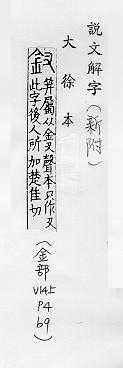 說文解字(新附)
大徐本
釵 笄屬从金叉聲本只作叉
此字後人所加楚佳切
(金部
V14.5
P4
b9)